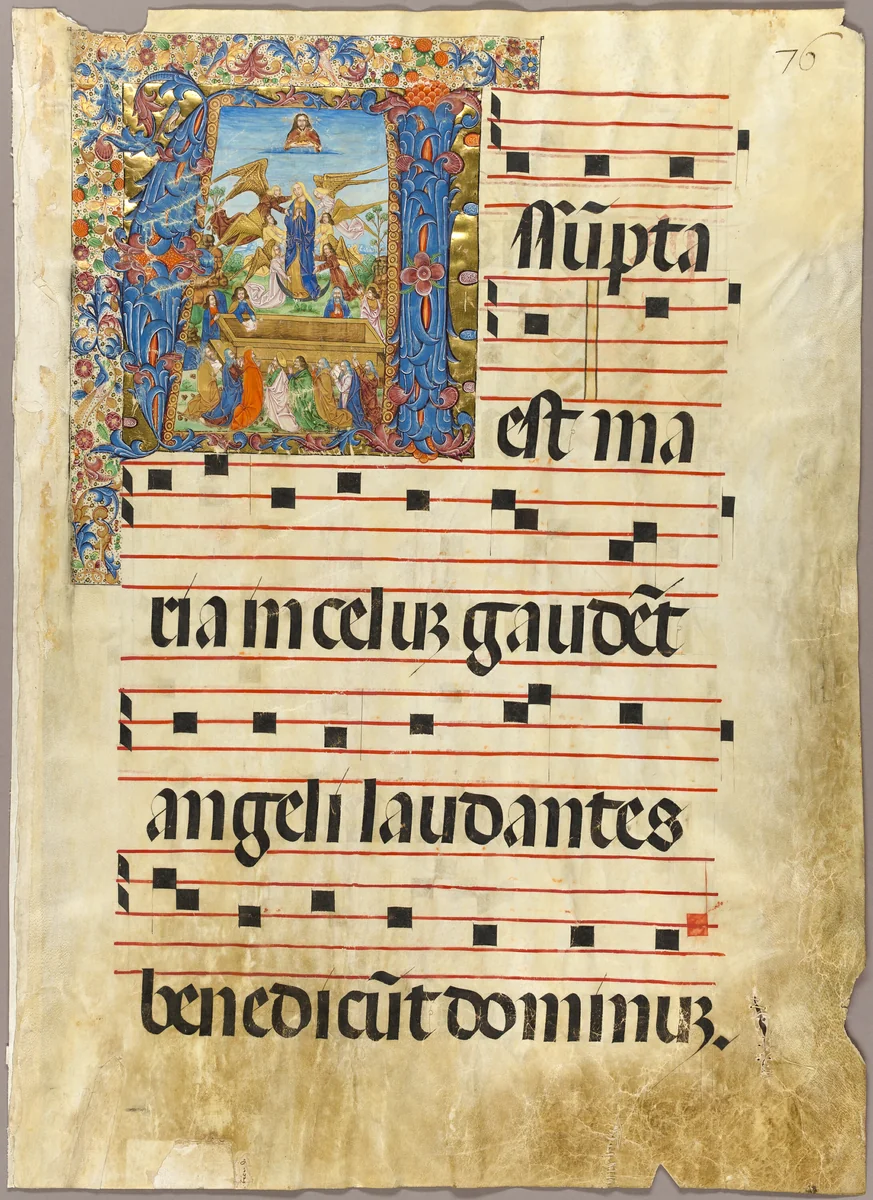 76
Aſſũpta
est ma
ria in celuȝ gaudẽt
angeli laudantes
benedicũt dominuȝ.